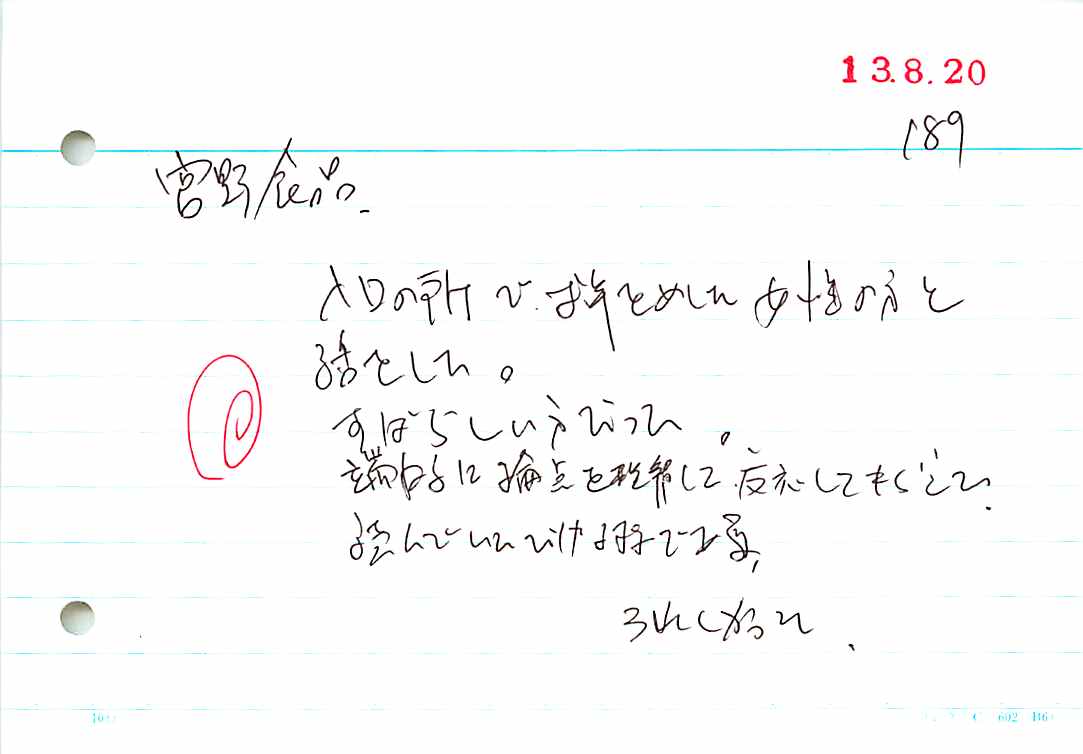 13.8.20
189
宮野食品
入口の所で、お年をめした女性の方と
話をした。
すばらしい方だった。
端的に論点を理解して、反応してもらえた。
読んでいただけ
うれしかった、
602